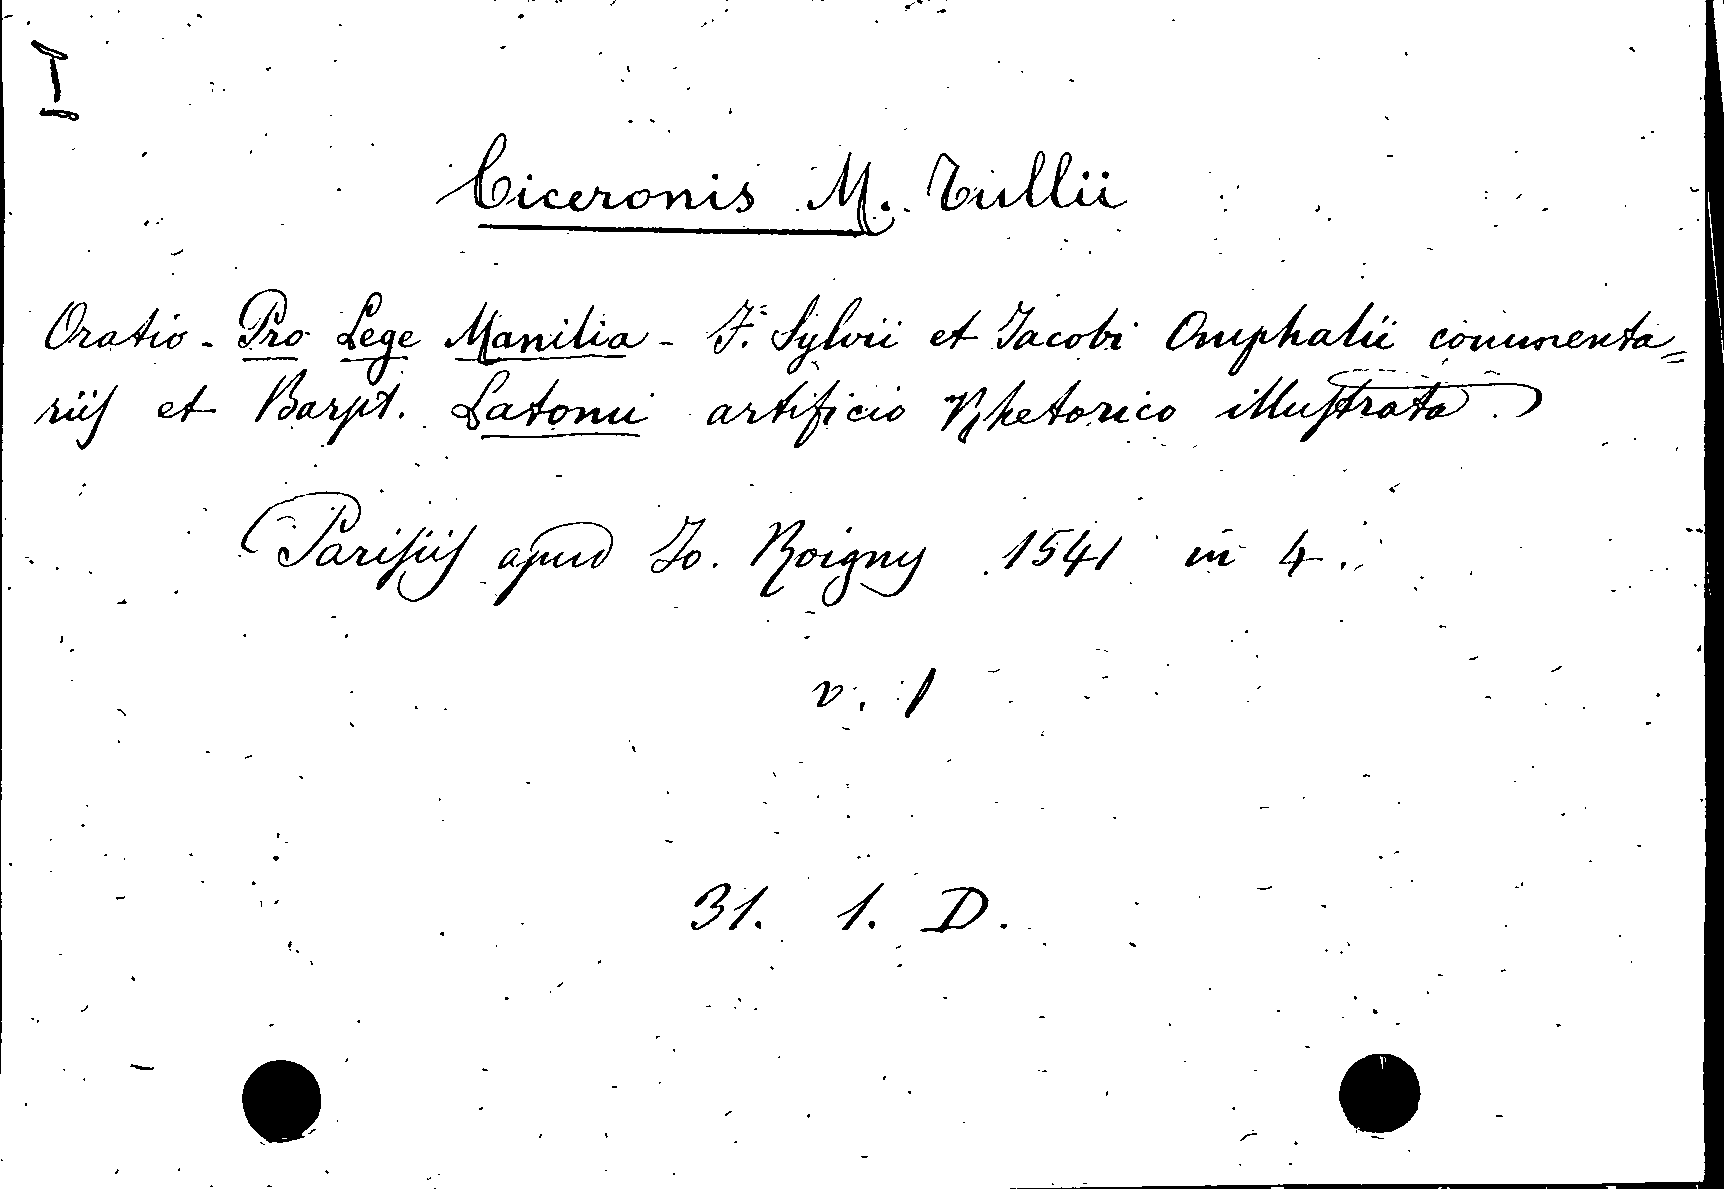 I
Ciceronis M. Tullii
Oratio - Pro Lege Manilia - F. Sylvii et Jacobi Omphalii commenta=
riis et Barpt. Latomi artificio Rhetorico illustrata.
Parisiis apud Jo. Roigny 1541 in 4.
v. 1
31. 1. D.